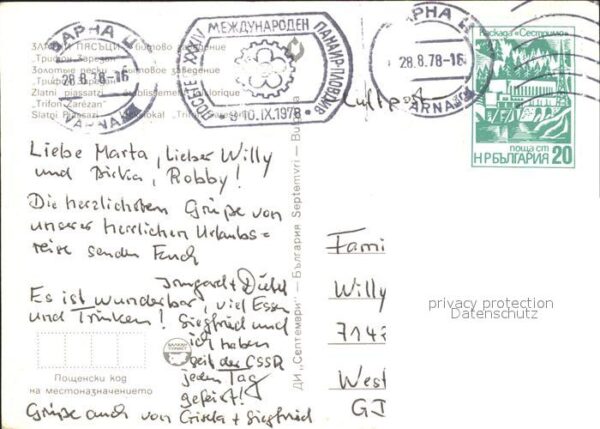 ЗЛАТНИ ПЯСЪЦИ — битово заведение
„Трифон Зарезан"
Золотые пески — бытовое заведение
Zlatni piassatzi — établissement folklorique
"Trifon Zarézan"
ВАРНА Ц
28.8.78-16
VARNA
ПОСЕТЕТЕ XXXIV МЕЖДУНАРОДЕН ПАНАИР-ПЛОВДИВ
3-10.IX.1978
ВАРНА Ц
28.8.78-16
VARNA
Каскада „Сестримо"
поща ст
НР БЪЛГАРИЯ 20
Luftpost
Liebe Marta, Lieber Willy
und Birka, Robby!
Die herzlichsten Grüße von
unserer herrlichen Urlaubs=
reise senden Euch
Irmgard +
Es ist wunderbar, viel Essen
und Trinken! Siegfried und
ich haben
seit der CSSR
jeden Tag
gefeiert!
Grüße auch von Gisela + Siegfried
Пощенски код
на местоназначението
БАЛКАНТУРИСТ
ДИ „Септември" — България Septemvri — Bulgaria
Fami
Willy
7142
West
GI
privacy protection
Datenschutz